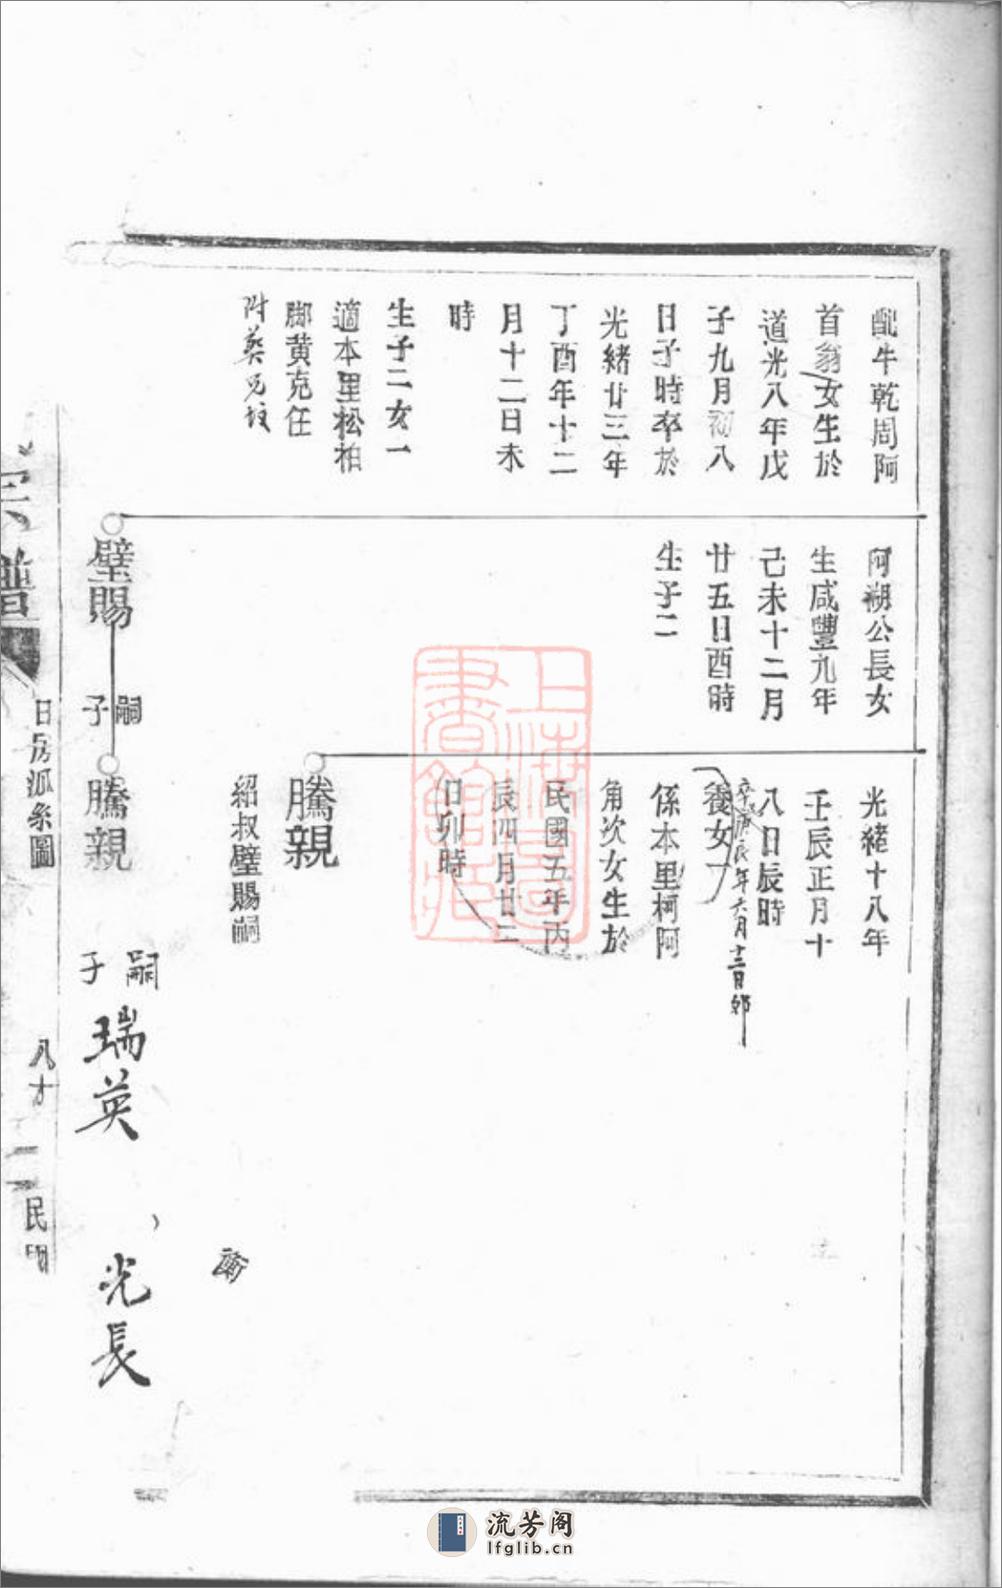 配牛乾周阿
首翁女生於
道光八年戊
子九月初八
日子時卒於
光緒廿三年
丁酉年十二
月十二日未
時
生子二女一
適本里松柏
腳黄克任
附葬兄墳
阿湖公長女
生咸豐九年
己未十二月
廿五日酉時
生子二
璧賜
嗣子
光緒十八年
壬辰正月十
八日辰時
卒於庚辰年六月十二日卯
養女一
係本里柯阿
角次女生於
民國五年丙
辰四月廿二
日卯時
騰親
紹叔璧賜嗣
騰親
嗣子
瑞英
光長
衡
宗譜
日房派系圖
民
上海圖書館藏
流芳阁
lfglib.cn